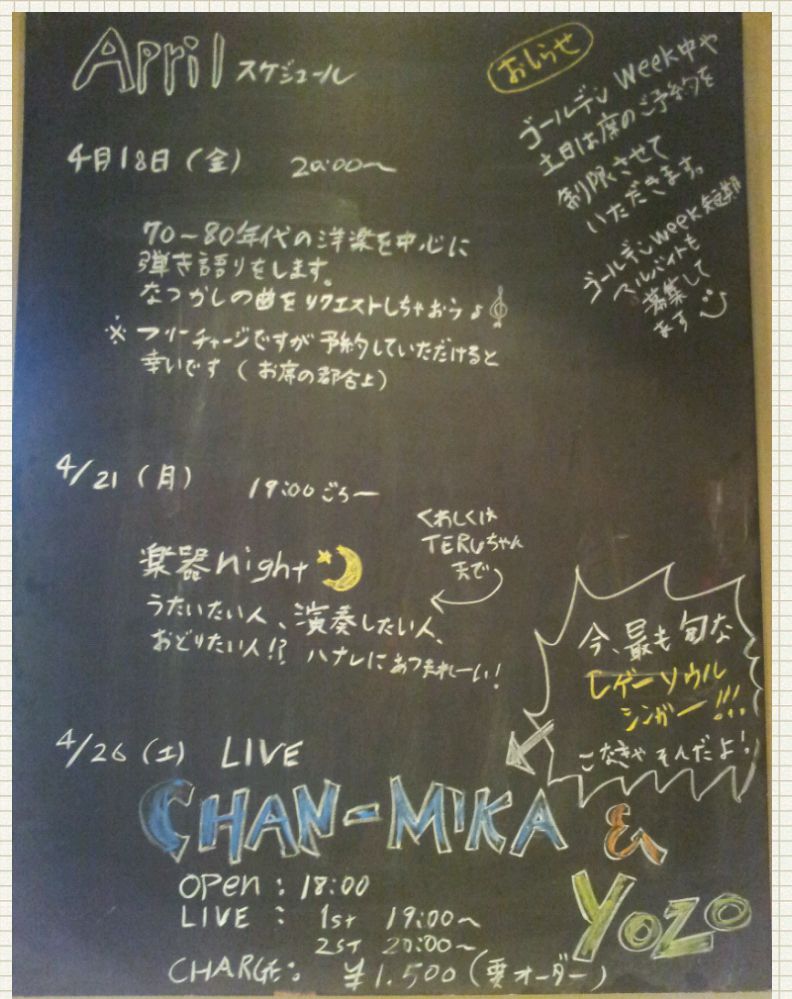 April スケジュール
おしらせ
ゴールデンWeek中や
土日は席のご予約を
制限させて
いただきます。
ゴールデンweek短期
アルバイトも
募集して
ます
4月18日(金) 20:00〜
70〜80年代の洋楽を中心に
弾き語りをします。
なつかしの曲をリクエストしちゃおう♪
※フリーチャージですが予約していただけると
幸いです(お席の都合上)
4/21(月) 19:00ごろ〜
くわしくは
TERUちゃん
まで
楽器night
うたいたい人、演奏したい人、
おどりたい人!? ハナレにあつまれーい!
今、最も旬な
レゲーソウル
シンガー!!!
こなきゃそんだよ!
4/26(土) LIVE
CHAN-MIKA &
YOZO
OPEN: 18:00
LIVE: 1st 19:00〜
2st 20:00〜
CHARGE: ¥1.500(要オーダー)